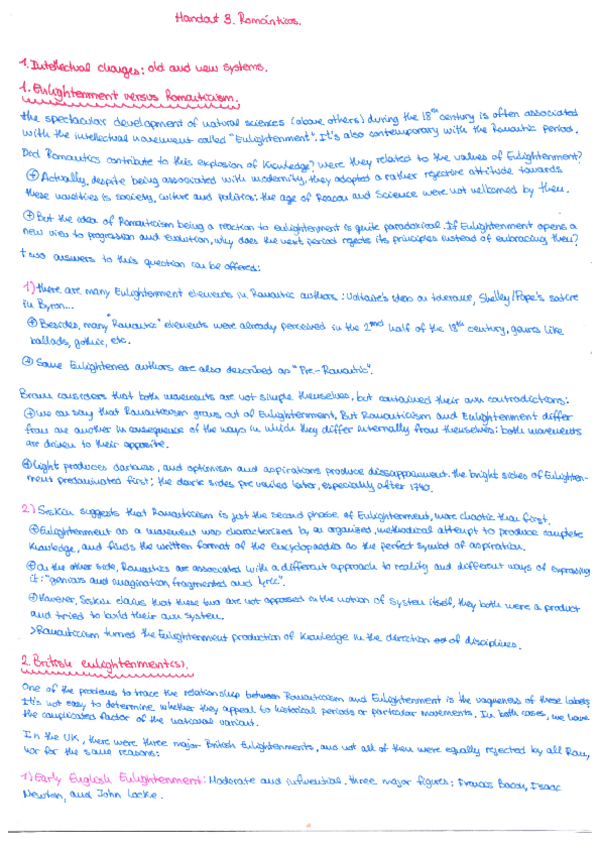 Handout 3. Románticos.
1. Intellectual changes: old and new systems.
1. Enlightenment versus Romanticism.
the spectacular development of natural sciences (above others) during the 18th century is often associated
with the intellectual movement called "Enlightenment". It's also contemporary with the Romantic Period.
Did Romantics contribute to this explosion of knowledge? Were they related to the values of Enlightenment?
Actually, despite being associated with modernity, they adopted a rather rejective attitude towards
these novelties is society, culture and politics: the age of Reason and Science were not welcomed by them.
But the idea of Romanticism being a reaction to enlightenment is quite paradoxical. If Enlightenment opens a
new view to progression and evolution, why does the next period rejects its principles instead of embracing them?
two answers to this question can be offered:
1) there are many Enlightenment elements in Romantic authors: Voltaire's ideas on tolerance, Shelley/Pope's satire
in Byron...
Besides, many "Romantic" elements were already perceived in the 2nd half of the 18th century, genres like
ballads, gothic, etc.
Some Enlightened authors are also described as "Pre-Romantic".
Brown considers that both movements are not simple themselves, but contained their own contradictions:
we can say that Romanticism grows out of Enlightenment, But Romanticism and Enlightenment differ
from one another in consequence of the ways in which they differ internally from themselves: both movements
are driven to their opposite.
light produces darkness, and optimism and aspirations produce dissappointment. the bright sides of Enlighten-
ment predominated first; the dark sides prevailed later, especially after 1790.
2) Siskin suggests that Romanticism is just the second phase of Enlightenment, more chaotic than first.
Enlightenment as a movement was characterized by an organized, methodical attempt to produce complete
knowledge, and finds the written format of the encyclopaedia as the perfect symbol of aspiration.
On the other side, Romantics are associated with a different approach to reality and different ways of expressing
it: "genious and imagination, fragmented and lyric".
However, Siskin claims that these two are not opposed in the notion of System itself, they both were a product
and tried to build their own system.
>Romanticism turned the Enlightenment production of knowledge in the direction of disciplines.
2. British enlightenment(s).
One of the problems to trace the relationship between Romanticism and Enlightenment is the vagueness of these labels,
It's not easy to determine whether they appeal to historical periods or particular movements. In both cases, we have
the complicated factor of the national variant.
In the UK, there were three major British Enlightenments, and not all of them were equally rejected by all Rom,
nor for the same reasons:
1) Early English Enlightenment: Moderate and influential. three major figures: Francis Bacon, Isaac
Newton, and John Locke.